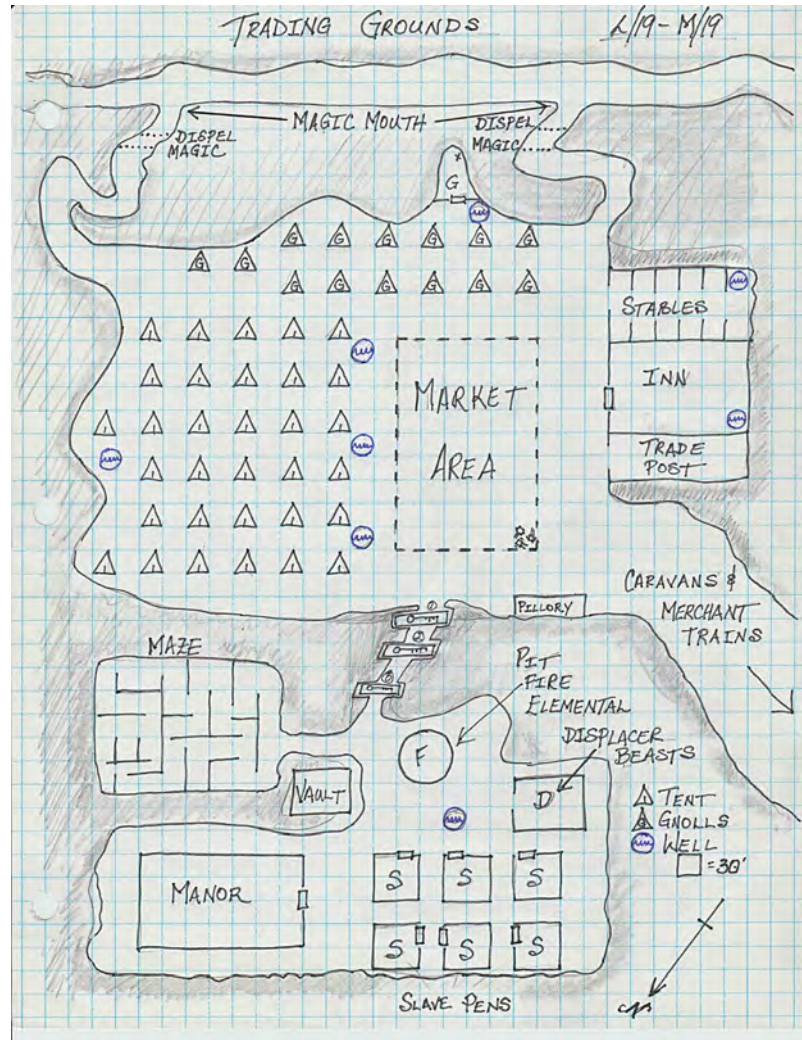 TRADING GROUNDS
L/19-M/19
MAGIC MOUTH
DISPEL
MAGIC
DISPEL
MAGIC
G
G G G G G G
G G
G G G G G G
STABLES
INN
TRADE
POST
MARKET
AREA
CARAVANS &
MERCHANT
TRAINS
PILLORY
1
2
3
MAZE
PIT
FIRE
ELEMENTAL
DISPLACER
BEASTS
F
D
VAULT
MANOR
S S S
S S S
SLAVE PENS
TENT
G GNOLLS
WELL
=30'